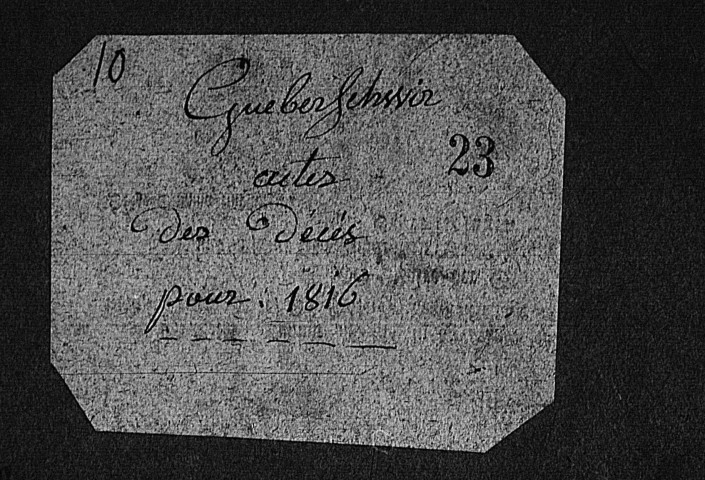 10
Gueberschwir
23
actes
des Décés
pour : 1816